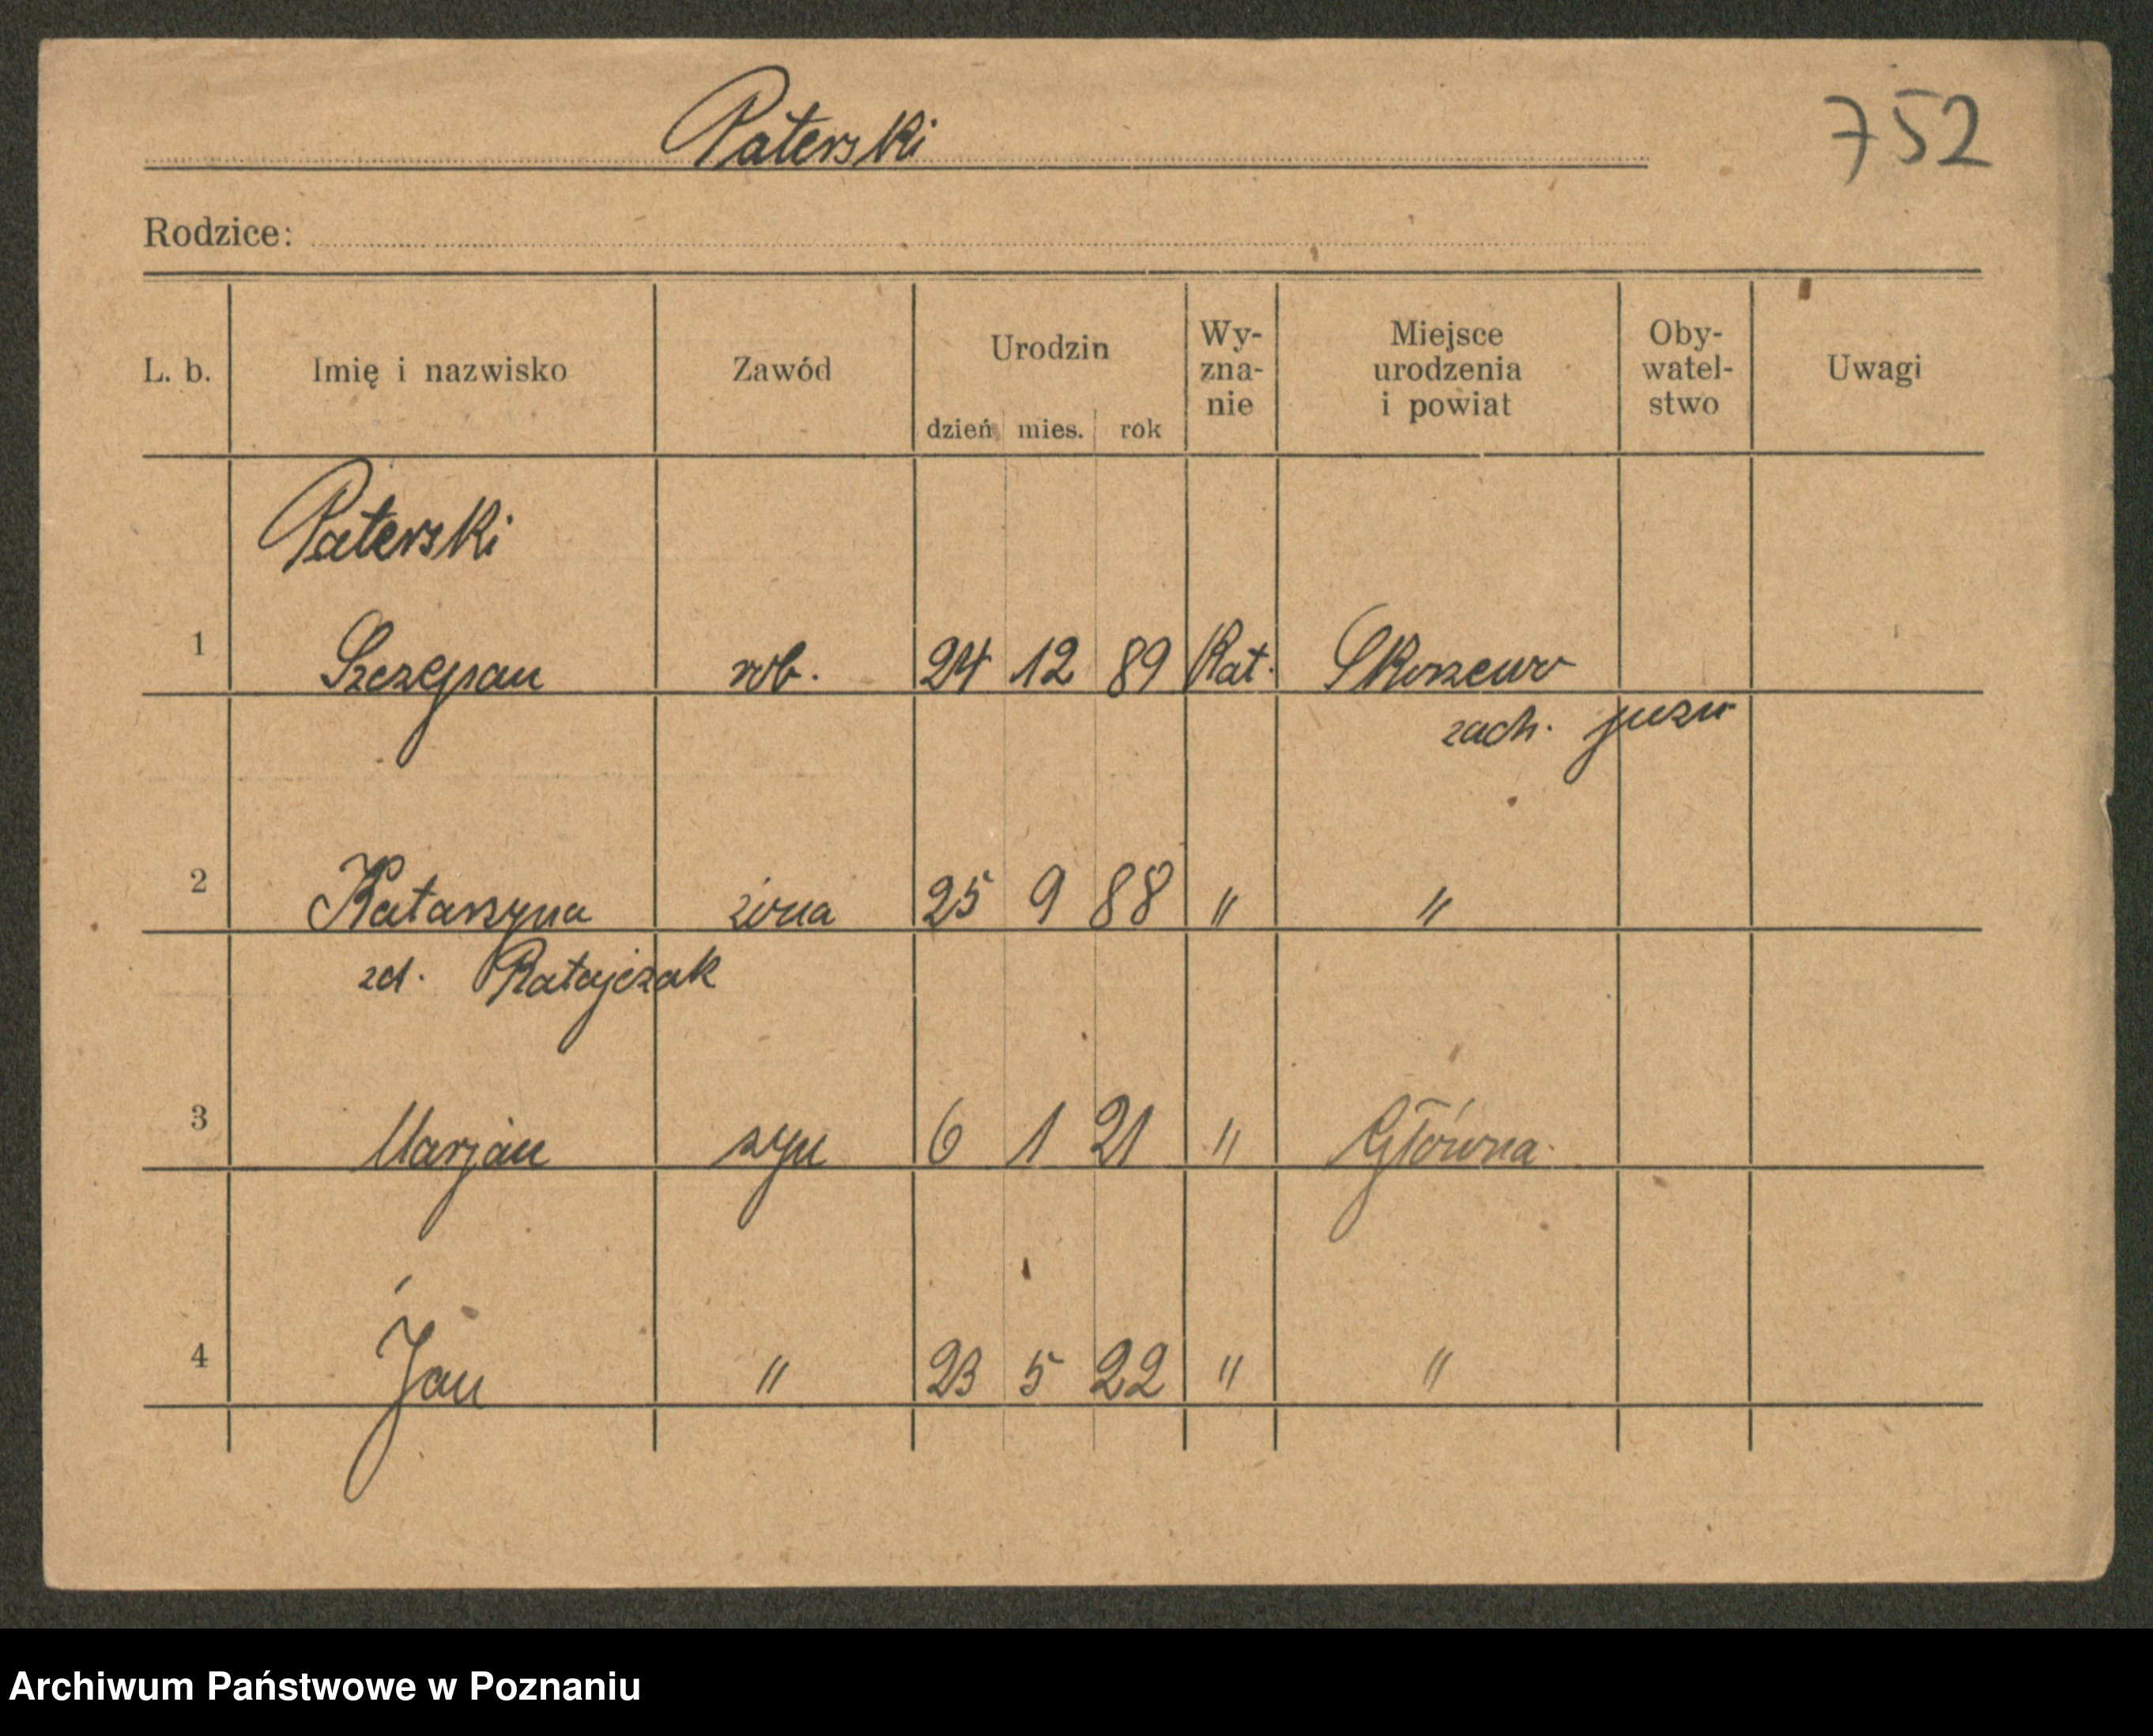 Paterski
752
Rodzice:
L. b. Imię i nazwisko Zawód Urodzin dzień mies. rok Wy-zna-nie Miejsce urodzenia i powiat Oby-watel-stwo Uwagi
Paterski
1 Szczepan rob. 24 12 89 Kat.
zach.
2 Katarzyna żona 25 9 88 " "
zd. Ratajczak
3 Marjan syn 6 1 21 " Główna
4 Jan " 23 5 22 " "
Archiwum Państwowe w Poznaniu